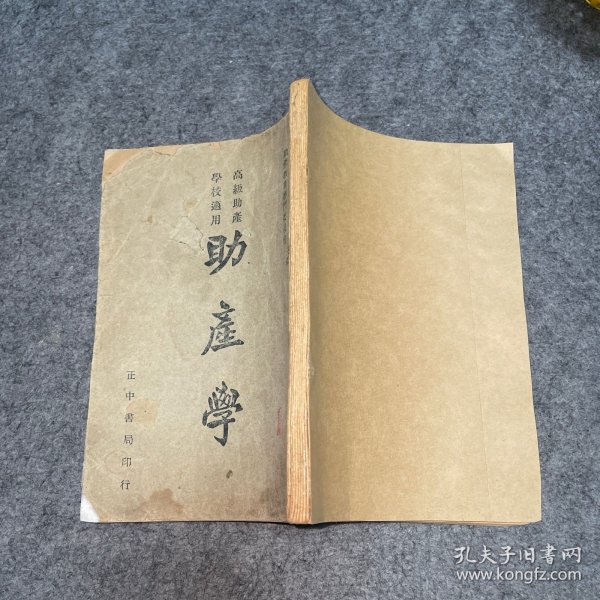 高級助產
學校適用
助產學
正中書局印行
孔夫子旧书网
www.kongfz.com